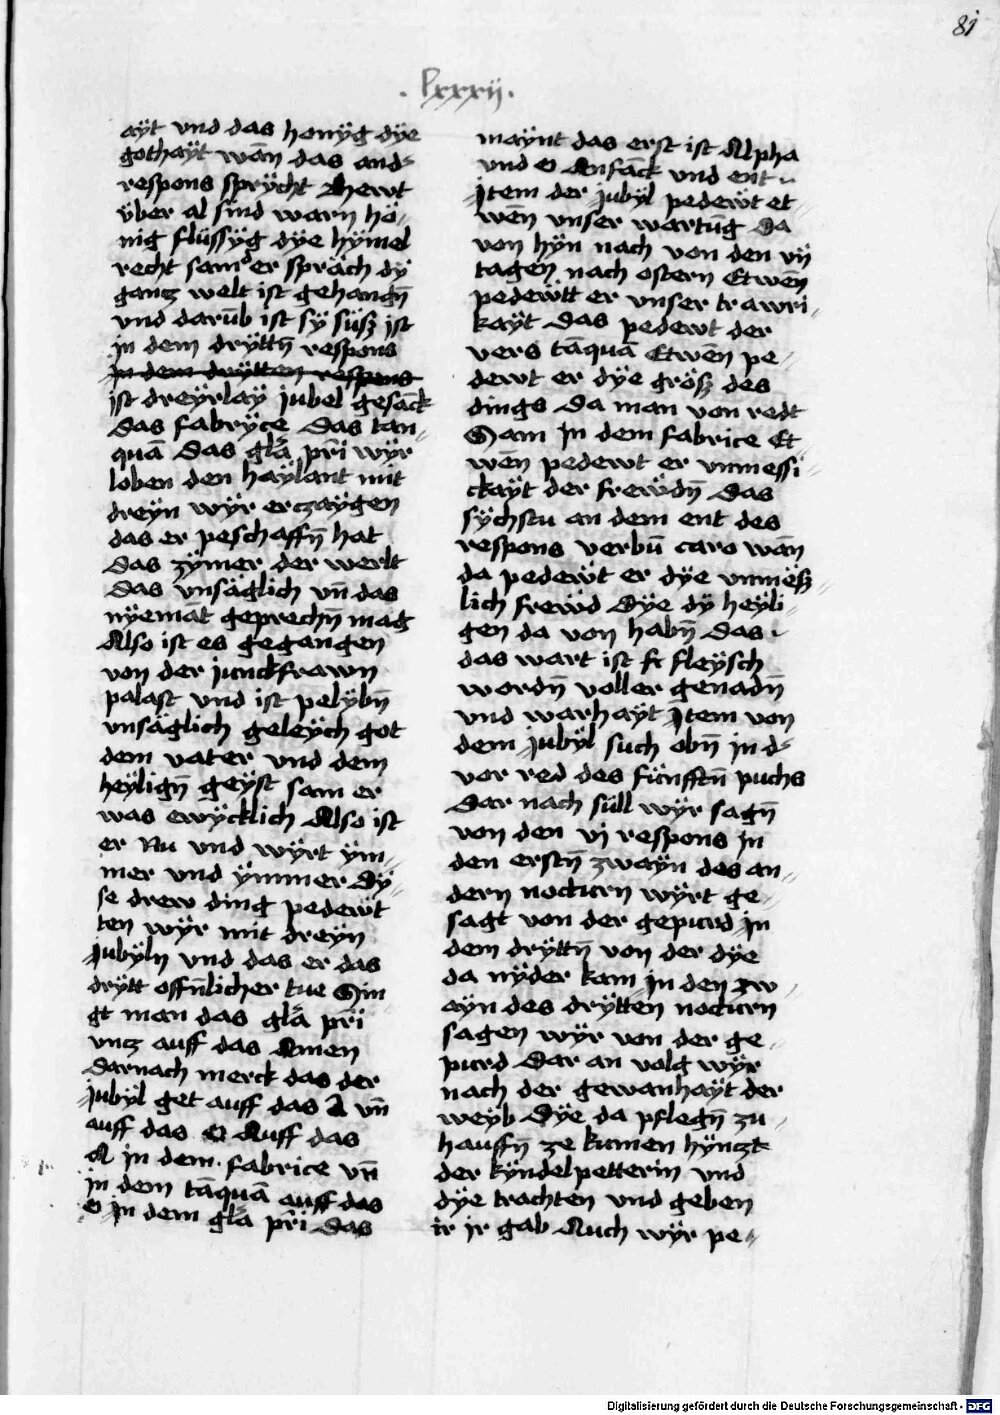 81
. lxxxij .
aÿt vnd das honÿg dÿe
gothaÿt wān das and-
respons sprÿcht hewt
vber al sind warn hö-
nig flüssÿg dÿe hÿmel
recht sam er spräch dÿ
gantz welt ist gehangn̄
vnd darūb ist sÿ süsz ist
jn dem drÿttn̄ respons
jn dem drÿtten respons
ist dreÿrlaÿ jubel gesāck
das fabrÿce das tan-
quā das gl̄a pr̄i wÿr
loben den haÿlant mit
dreÿn wÿr erczaÿgen
das er peschaffn̄ hat
das zÿmer der werlt
das vnsäglich vn̄ das
nÿemāt geprechn̄ mag
Also ist es gegangen
von der junckfrawn
palast vnd ist pelÿbn̄
vnsäglich geleÿch got
dem vater vnd dem
heÿlign̄ geÿst sam er
was ewÿcklich Also ist
er Nu vnd wÿrt ÿm-
mer vnd ÿmmer dÿ-
se drew ding pedewt
ten wÿr mit dreÿn
jubÿln vnd das er das
drÿtt offn̄licher tue Sin
gt man das gl̄a pr̄i
vntz auff das Amen
Darnach merck das der
jubÿl get auff das A vn̄
auff das O Auff das
A in dem fabrice vn̄
in dem tāquā auff das
O jn dem gl̄a pr̄i Das
maÿnt das erst ist Alpha
vnd O Anfāck vnd ent
jtem der jubÿl pedewt et-
wēn vnser wartūg Da
von hÿn nach von den vij
tagen nach ostern Etwēn
pedewtt er vnser trawri-
kaÿt Das pedewt der
vers tāquā Etwēn pe-
dewt er dÿe grösz des
dings Da man von redt
Sam jn dem fabrice Et
wēn pedewt er vnmessi-
ckaÿt der frewdn̄ Das
sÿchstu an dem ent des
respons verbū caro wān
da pedewt er dÿe vnmësz-
lich frewd Dÿe dÿ heÿli-
gen da von habn̄ Das
das wart ist fleÿsch
wordn̄ voller genadn̄
vnd warhaÿt jtem von
dem jubÿl such obn̄ jn d-
vor red des fünfftn̄ puchs
Dar nach süll wÿr sagn̄
von den vj respons jn
den erstn̄ zwaÿn des an-
dern nocturn wÿrt ge-
sagt von der gepurd jn
dem drÿttn̄ von der dÿe
da nÿder kam jn den zw-
aÿn des drÿtten nocturn
sagen wÿr von der ge-
purd Dar an volg wÿr
nach der gewanhaÿt der
weÿb Dÿe da pflegn̄ zu-
hauffn̄ ze kumen hÿntzt
der kÿndelpetterin vnd
dÿe trachten vnd geben
ir jr gab Auch wÿr pe-
Digitalisierung gefördert durch die Deutsche Forschungsgemeinschaft - DFG